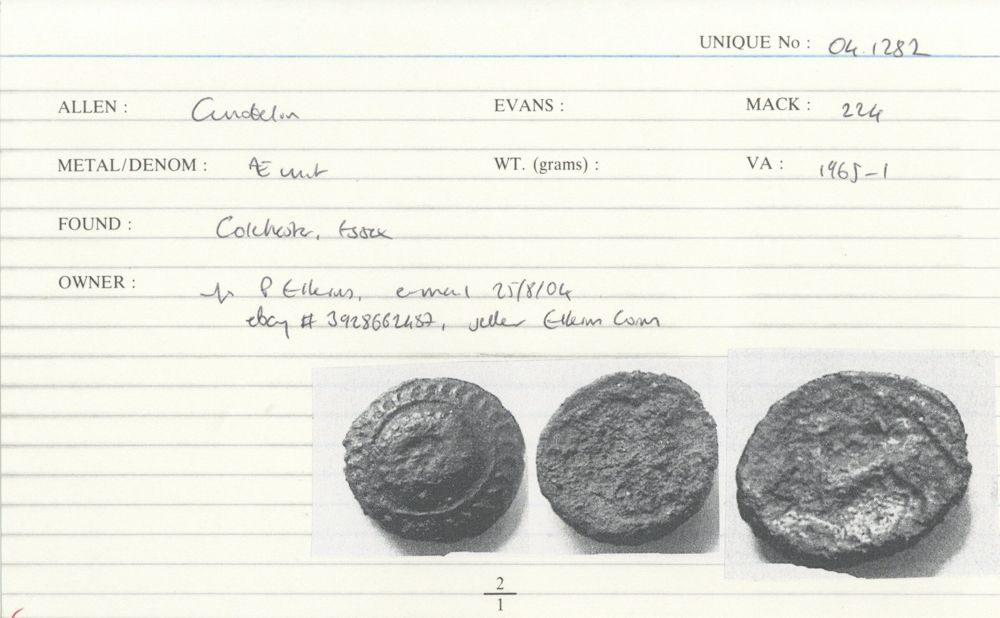 UNIQUE No : 04.1282
ALLEN : Cunobelin EVANS : MACK : 224
METAL/DENOM : Æ unit WT. (grams) : VA : 1965-1
FOUND : Colchester, Essex
OWNER : P Elkins, e-mail 25/8/04
ebay # 3928662487, seller Elkins Coins
2
1